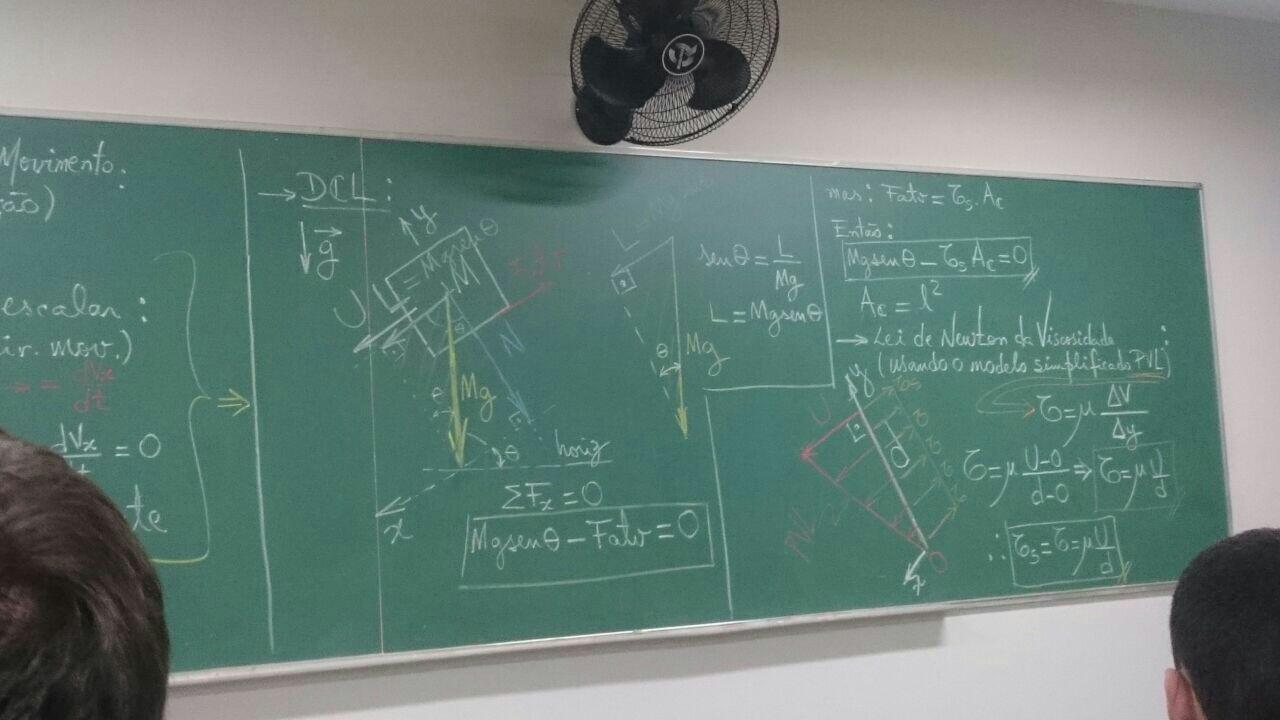 Movimento.
ção)
escalar:
ir. mov.)
= dVx/dt
dVx/t = 0
te
→ DCL:
g
y
L = Mgsenθ
M
U
N
θ
Mg
θ
θ
horiz
x
ΣFx = 0
Mgsenθ - Fatv = 0
L
θ
Mg
senθ = L/Mg
L = Mgsenθ
mas: Fatv = τs.Ac
Então:
Mgsenθ - τsAc = 0
Ac = l²
→ Lei de Newton da Viscosidade:
(usando o modelo simplificado PVL)
τ = μ ΔV/Δy
τ = μ U-0/d-0 ⇒ τ = μ U/d
∴ τs = τ = μ U/d
y
τs
U
d
τ
τ
τ
PVL
0
x